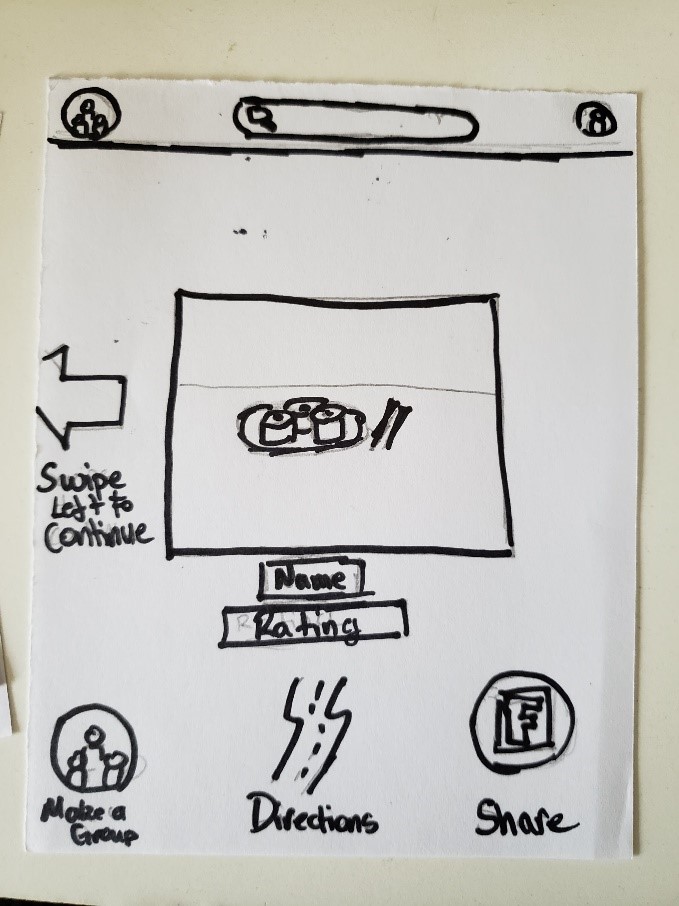 Swipe
Left to
Continue
Name
Rating
F
Make a
Group
Directions
Share